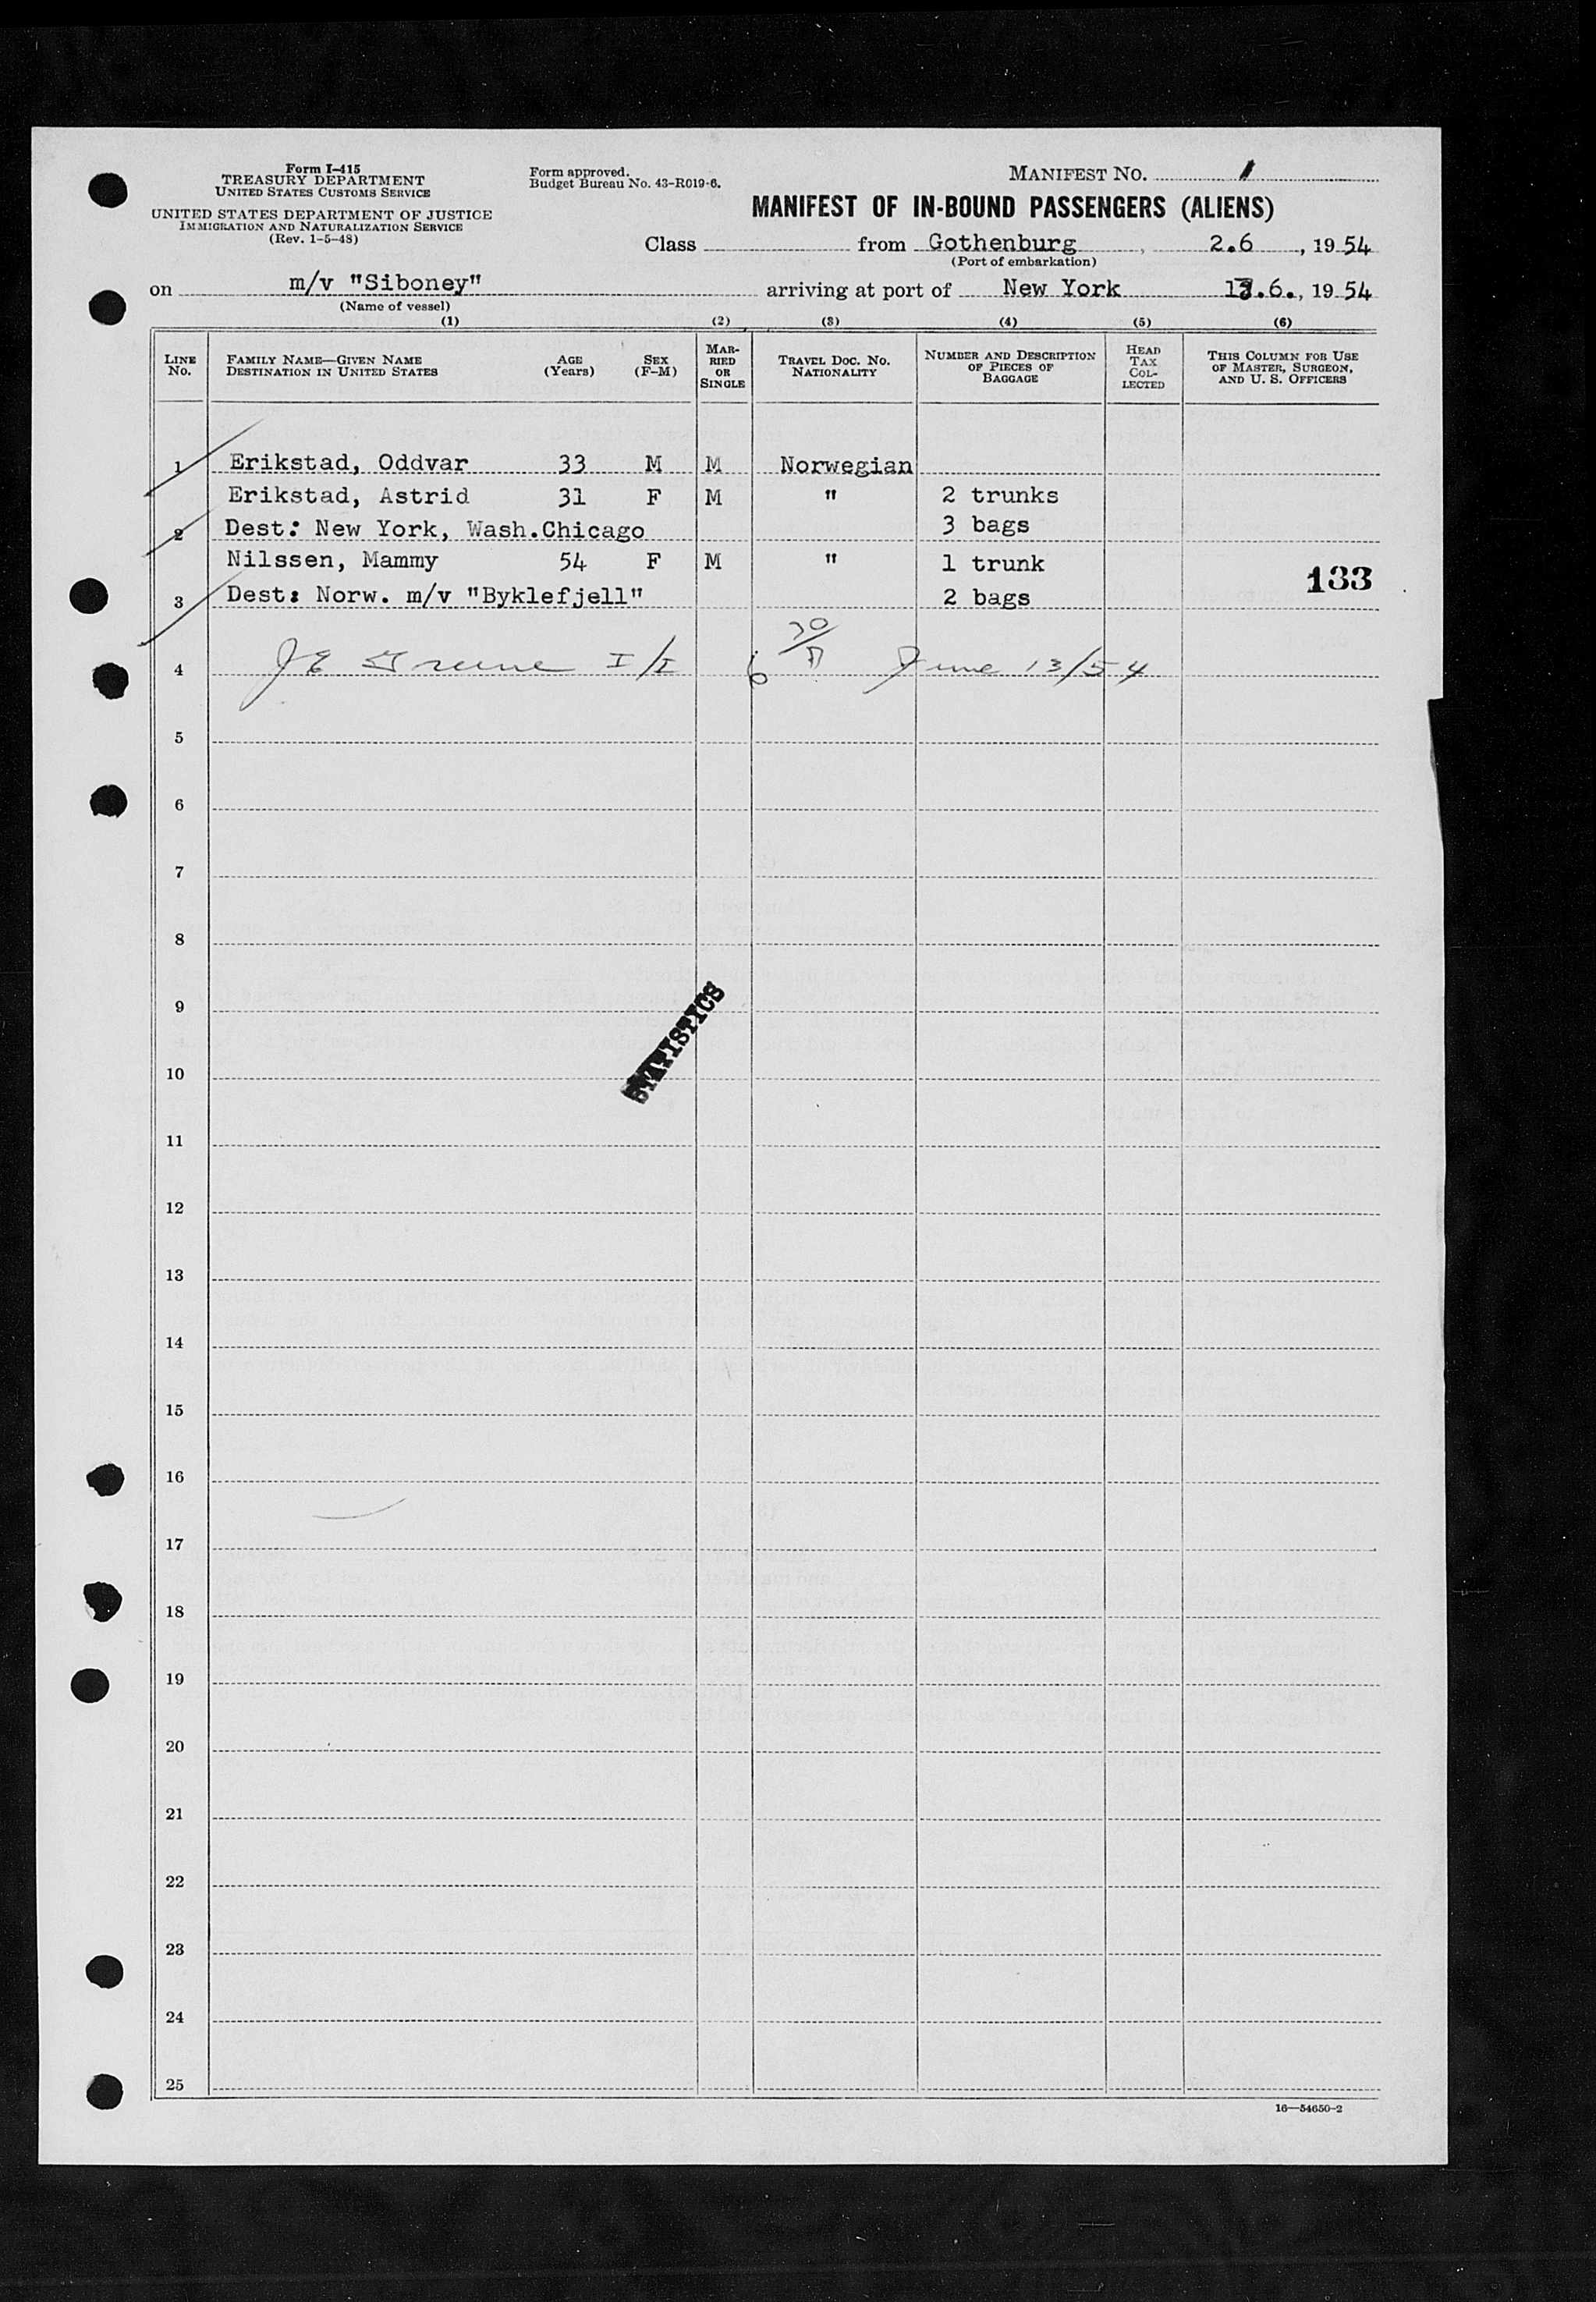 Form I-415
TREASURY DEPARTMENT
UNITED STATES CUSTOMS SERVICE
UNITED STATES DEPARTMENT OF JUSTICE
IMMIGRATION AND NATURALIZATION SERVICE
(Rev. 1-5-48)
Form approved.
Budget Bureau No. 43-R019-6.
MANIFEST NO. 1
MANIFEST OF IN-BOUND PASSENGERS (ALIENS)
Class from Gothenburg, 2.6, 1954
(Port of embarkation)
on m/v "Siboney" arriving at port of New York 13.6., 1954
(Name of vessel)
(1) (2) (3) (4) (5) (6)
LINE NO. FAMILY NAME—GIVEN NAME DESTINATION IN UNITED STATES AGE (Years) SEX (F-M) MARRIED OR SINGLE TRAVEL DOC. NO. NATIONALITY NUMBER AND DESCRIPTION OF PIECES OF BAGGAGE HEAD TAX COLLECTED THIS COLUMN FOR USE OF MASTER, SURGEON, AND U. S. OFFICERS
1 Erikstad, Oddvar 33 M M Norwegian
Erikstad, Astrid 31 F M " 2 trunks
2 Dest: New York, Wash.Chicago 3 bags
Nilssen, Mammy 54 F M " 1 trunk
133
3 Dest: Norw. m/v "Byklefjell" 2 bags
4 June 13/54
5
6
7
8
9
STATISTICS
10
11
12
13
14
15
16
17
18
19
20
21
22
23
24
25
16—54650-2